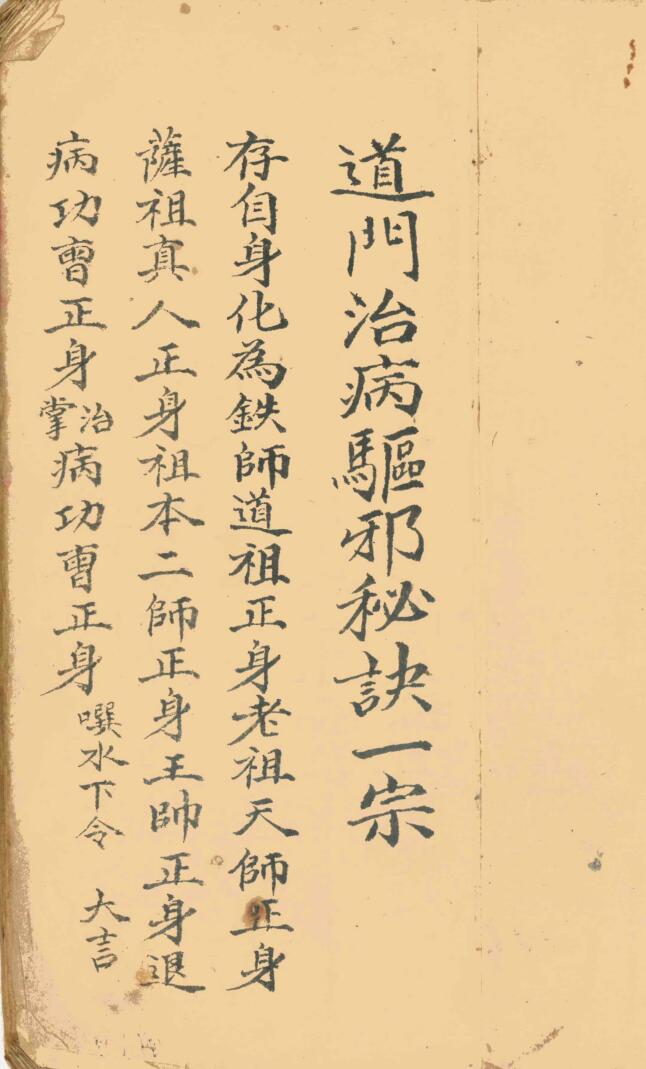 道門治病驅邪秘訣一宗
存自身化為鉄師道祖正身老祖天師正身
薩祖真人正身祖本二師正身王帥正身退
病功曹正身治掌病功曹正身噀水下令 大言